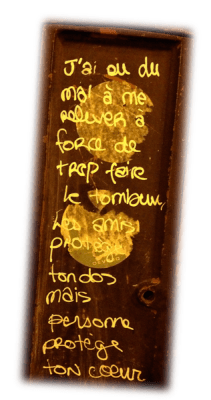 J'ai eu du
mal à me
relever à
force de
trop faire
le tombeur,
Les amis
protège
ton dos
mais
personne
protège
ton coeur